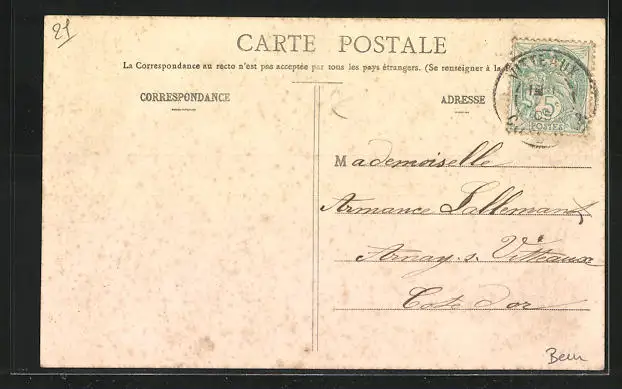 21
CARTE POSTALE
La Correspondance au recto n'est pas acceptée par tous les pays étrangers. (Se renseigner à la
CORRESPONDANCE
ADRESSE
VITTEAUX
5c
POSTES
Mademoiselle
Armance Lallemant
Arnay. s. Vitteaux
Cote d'or